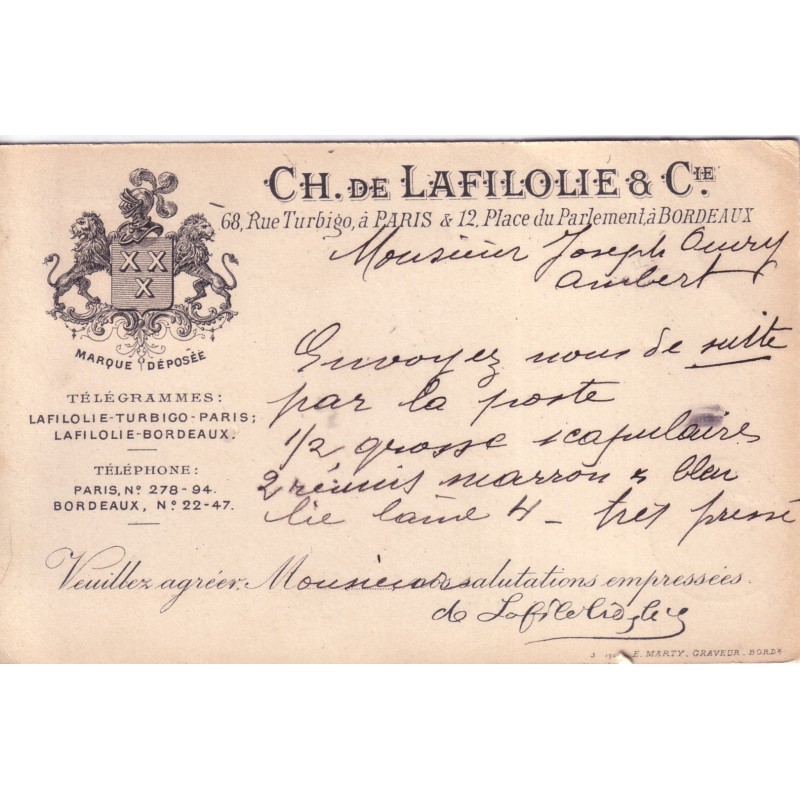 CH. DE LAFILOLIE & CIE.
68, Rue Turbigo, à PARIS & 12, Place du Parlement, à BORDEAUX
Monsieur Joseph Ouvry
Ambert
X X
X
MARQUE DÉPOSÉE
TÉLÉGRAMMES:
LAFILOLIE-TURBIGO-PARIS;
LAFILOLIE-BORDEAUX.
TÉLÉPHONE:
PARIS, No 278-94.
BORDEAUX, No 22-47.
Envoyez nous de suite
par la poste
1/2 grosse scapulaires
2 réunis marron & bleu
lie laine 4 - très pressé
Veuillez agréer, Monsieur salutations empressées.
de Lafilolie
E. MARTY, GRAVEUR. BORDx